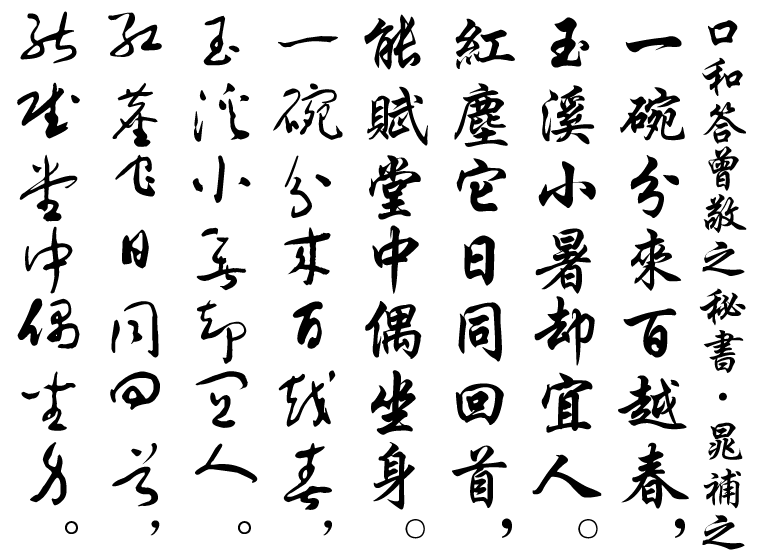 口和答曾敬之秘書・晁補之
一碗分來百越春，
玉溪小暑却宜人。
紅塵它日同回首，
能賦堂中偶坐身。
一碗分來百越春，
玉溪小暑却宜人。
紅塵它日同回首，
能賦堂中偶坐身。